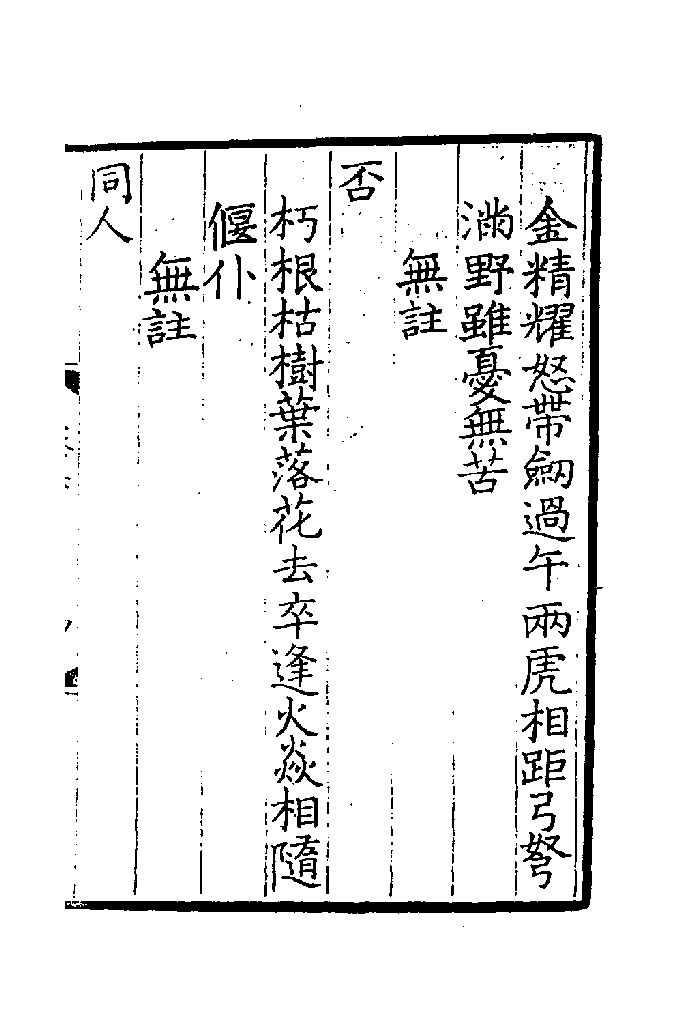 金精耀怒帶劒過午兩虎相距弓弩
滿野雖憂無苦
無註
否
朽根枯樹葉落花去卒逢火焱相隨
偃仆
無註
同人